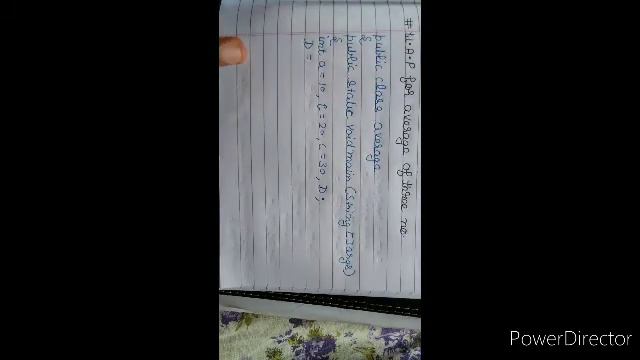 # W.A.P for average of three no.
public class average
{
public static void main (string [] args)
{
int a = 10, b = 20, c = 30, D;
D =
PowerDirector